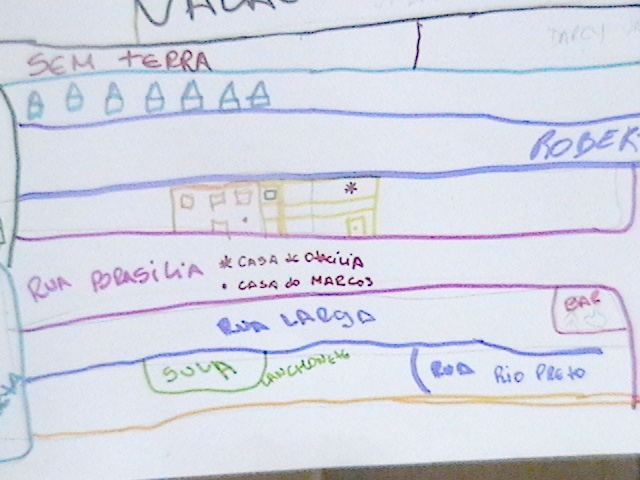 SEM TERRA
ROBER
RUA BORASILIA
* CASA do OTACILIA
• CASA do MARCOS
BAR
RUA LARGA
SUVA
LANCHONETE
RUA RIO PRETO